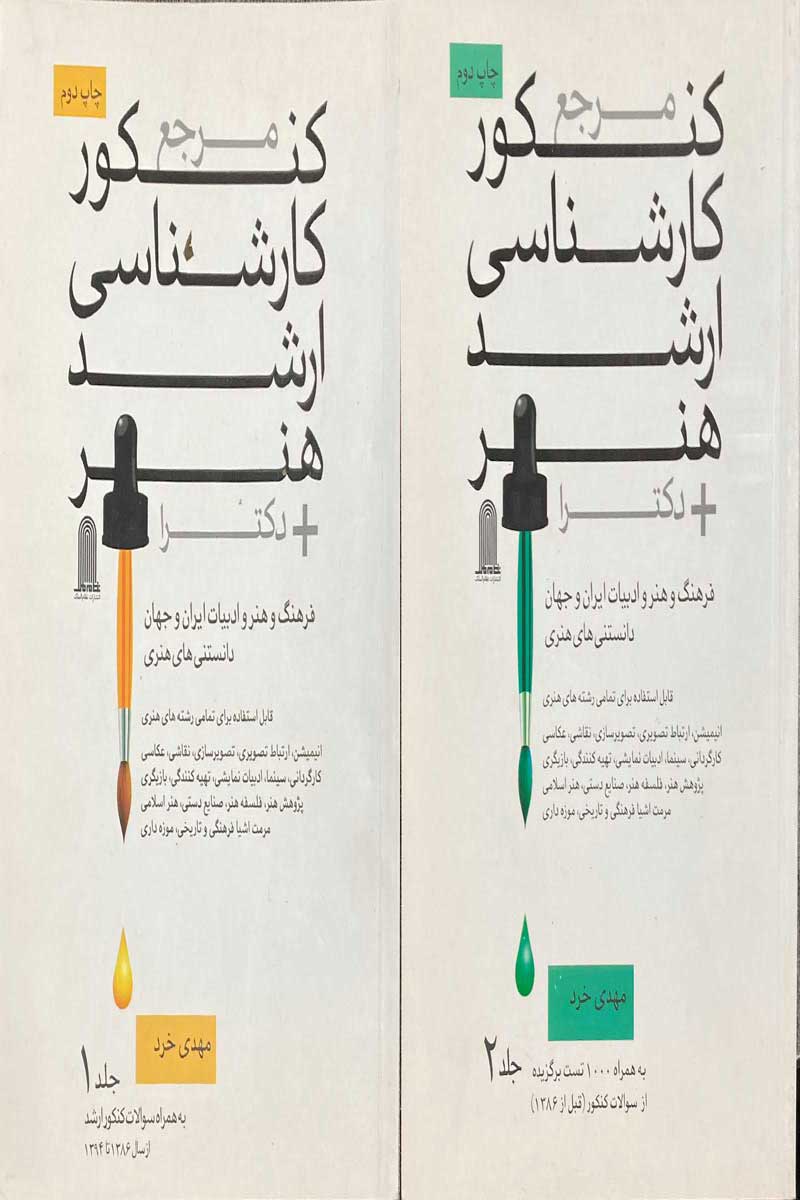 چاپ دوم
مرجع
کنکور
کارشناسی
ارشد
هنر
+ دکترا
فرهنگ و هنر و ادبیات ایران و جهان
دانستنی های هنری
قابل استفاده برای تمامی رشته های هنری
انیمیشن، ارتباط تصویری، تصویرسازی، نقاشی، عکاسی
کارگردانی، سینما، ادبیات نمایشی، تهیه کنندگی، بازیگری
پژوهش هنر، فلسفه هنر، صنایع دستی، هنر اسلامی
مرمت اشیا فرهنگی و تاریخی، موزه داری
مهدی خرد
جلد ۲
به همراه ۱۰۰۰ تست برگزیده
از سوالات کنکور (قبل از ۱۳۸۶)
چاپ دوم
مرجع
کنکور
کارشناسی
ارشد
هنر
+ دکترا
فرهنگ و هنر و ادبیات ایران و جهان
دانستنی های هنری
قابل استفاده برای تمامی رشته های هنری
انیمیشن، ارتباط تصویری، تصویرسازی، نقاشی، عکاسی
کارگردانی، سینما، ادبیات نمایشی، تهیه کنندگی، بازیگری
پژوهش هنر، فلسفه هنر، صنایع دستی، هنر اسلامی
مرمت اشیا فرهنگی و تاریخی، موزه داری
مهدی خرد
جلد ۱
به همراه سوالات کنکور ارشد
از سال ۱۳۸۶ تا ۱۳۹۴